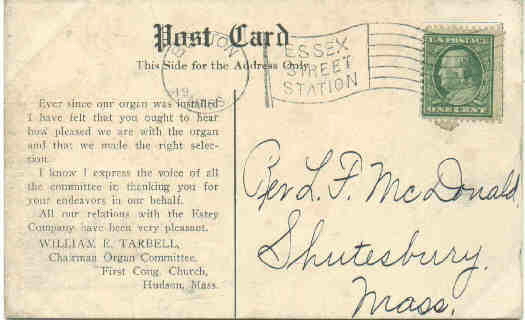 Post Card
This Side for the Address Only
ESSEX
STREET
STATION
19
U.S. POSTAGE
ONE CENT
Ever since our organ was installed
I have felt that you ought to hear
how pleased we are with the organ
and that we made the right selec-
tion.
I know I express the voice of all
the committee in thanking you for
your endeavors in our behalf.
All our relations with the Estey
Company have been very pleasant.
WILLIAM E. TARBELL,
Chairman Organ Committee.
First Cong. Church,
Hudson, Mass.
Rev L. F. McDonald,
Shutesbury,
Mass.